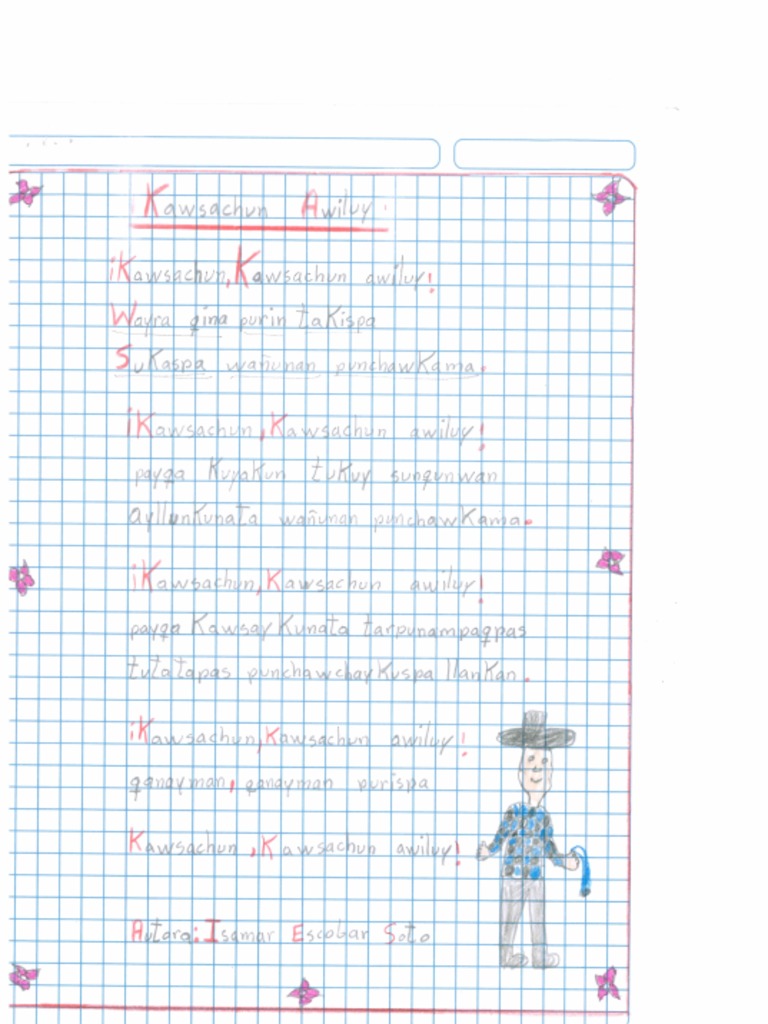 Kawsachun Awiluy.
¡Kawsachun, Kawsachun awiluy!
Wayra qina purin takispa
Sukaspa wañunan punchawkama.
¡Kawsachun, Kawsachun awiluy!
payqa Kuyakun tukuy sunqunwan
ayllunkunata wañunan punchawkama.
¡Kawsachun, Kawsachun awiluy!
payqa Kawsaykunata tarpunampaqpas
tutatapas punchawchaykuspa llankan.
¡Kawsachun, Kawsachun awiluy!
qanayman, qanayman purispa
Kawsachun, Kawsachun awiluy!
Autora: Isamar Escobar Soto